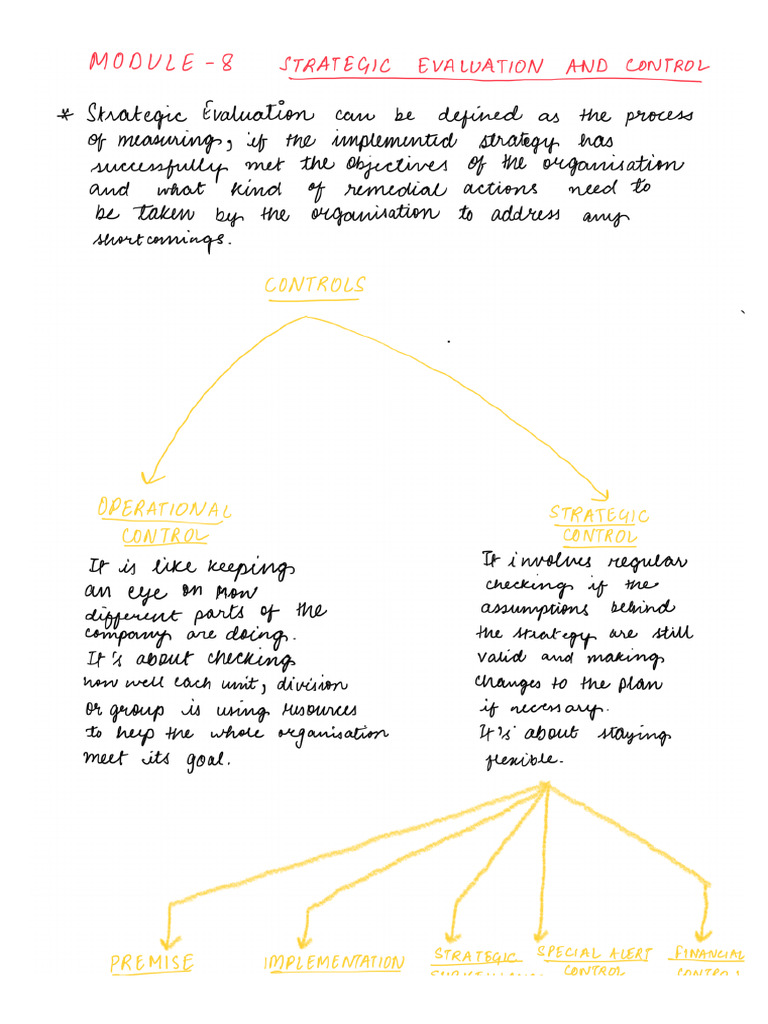 MODULE - 8 STRATEGIC EVALUATION AND CONTROL
* Strategic Evaluation can be defined as the process
of measuring, if the implemented strategy has
successfully met the objectives of the organisation
and what kind of remedial actions need to
be taken by the organisation to address any
shortcomings.
CONTROLS
OPERATIONAL
CONTROL
It is like keeping
an eye on how
different parts of the
company are doing.
It's about checking
how well each unit, division
or group is using resources
to help the whole organisation
meet its goal.
STRATEGIC
CONTROL
It involves regular
checking if the
assumptions behind
the strategy are still
valid and making
changes to the plan
if necessary.
It's about staying
flexible.
PREMISE
IMPLEMENTATION
STRATEGIC
SPECIAL ALERT
CONTROL
FINANCIAL
CONTROL